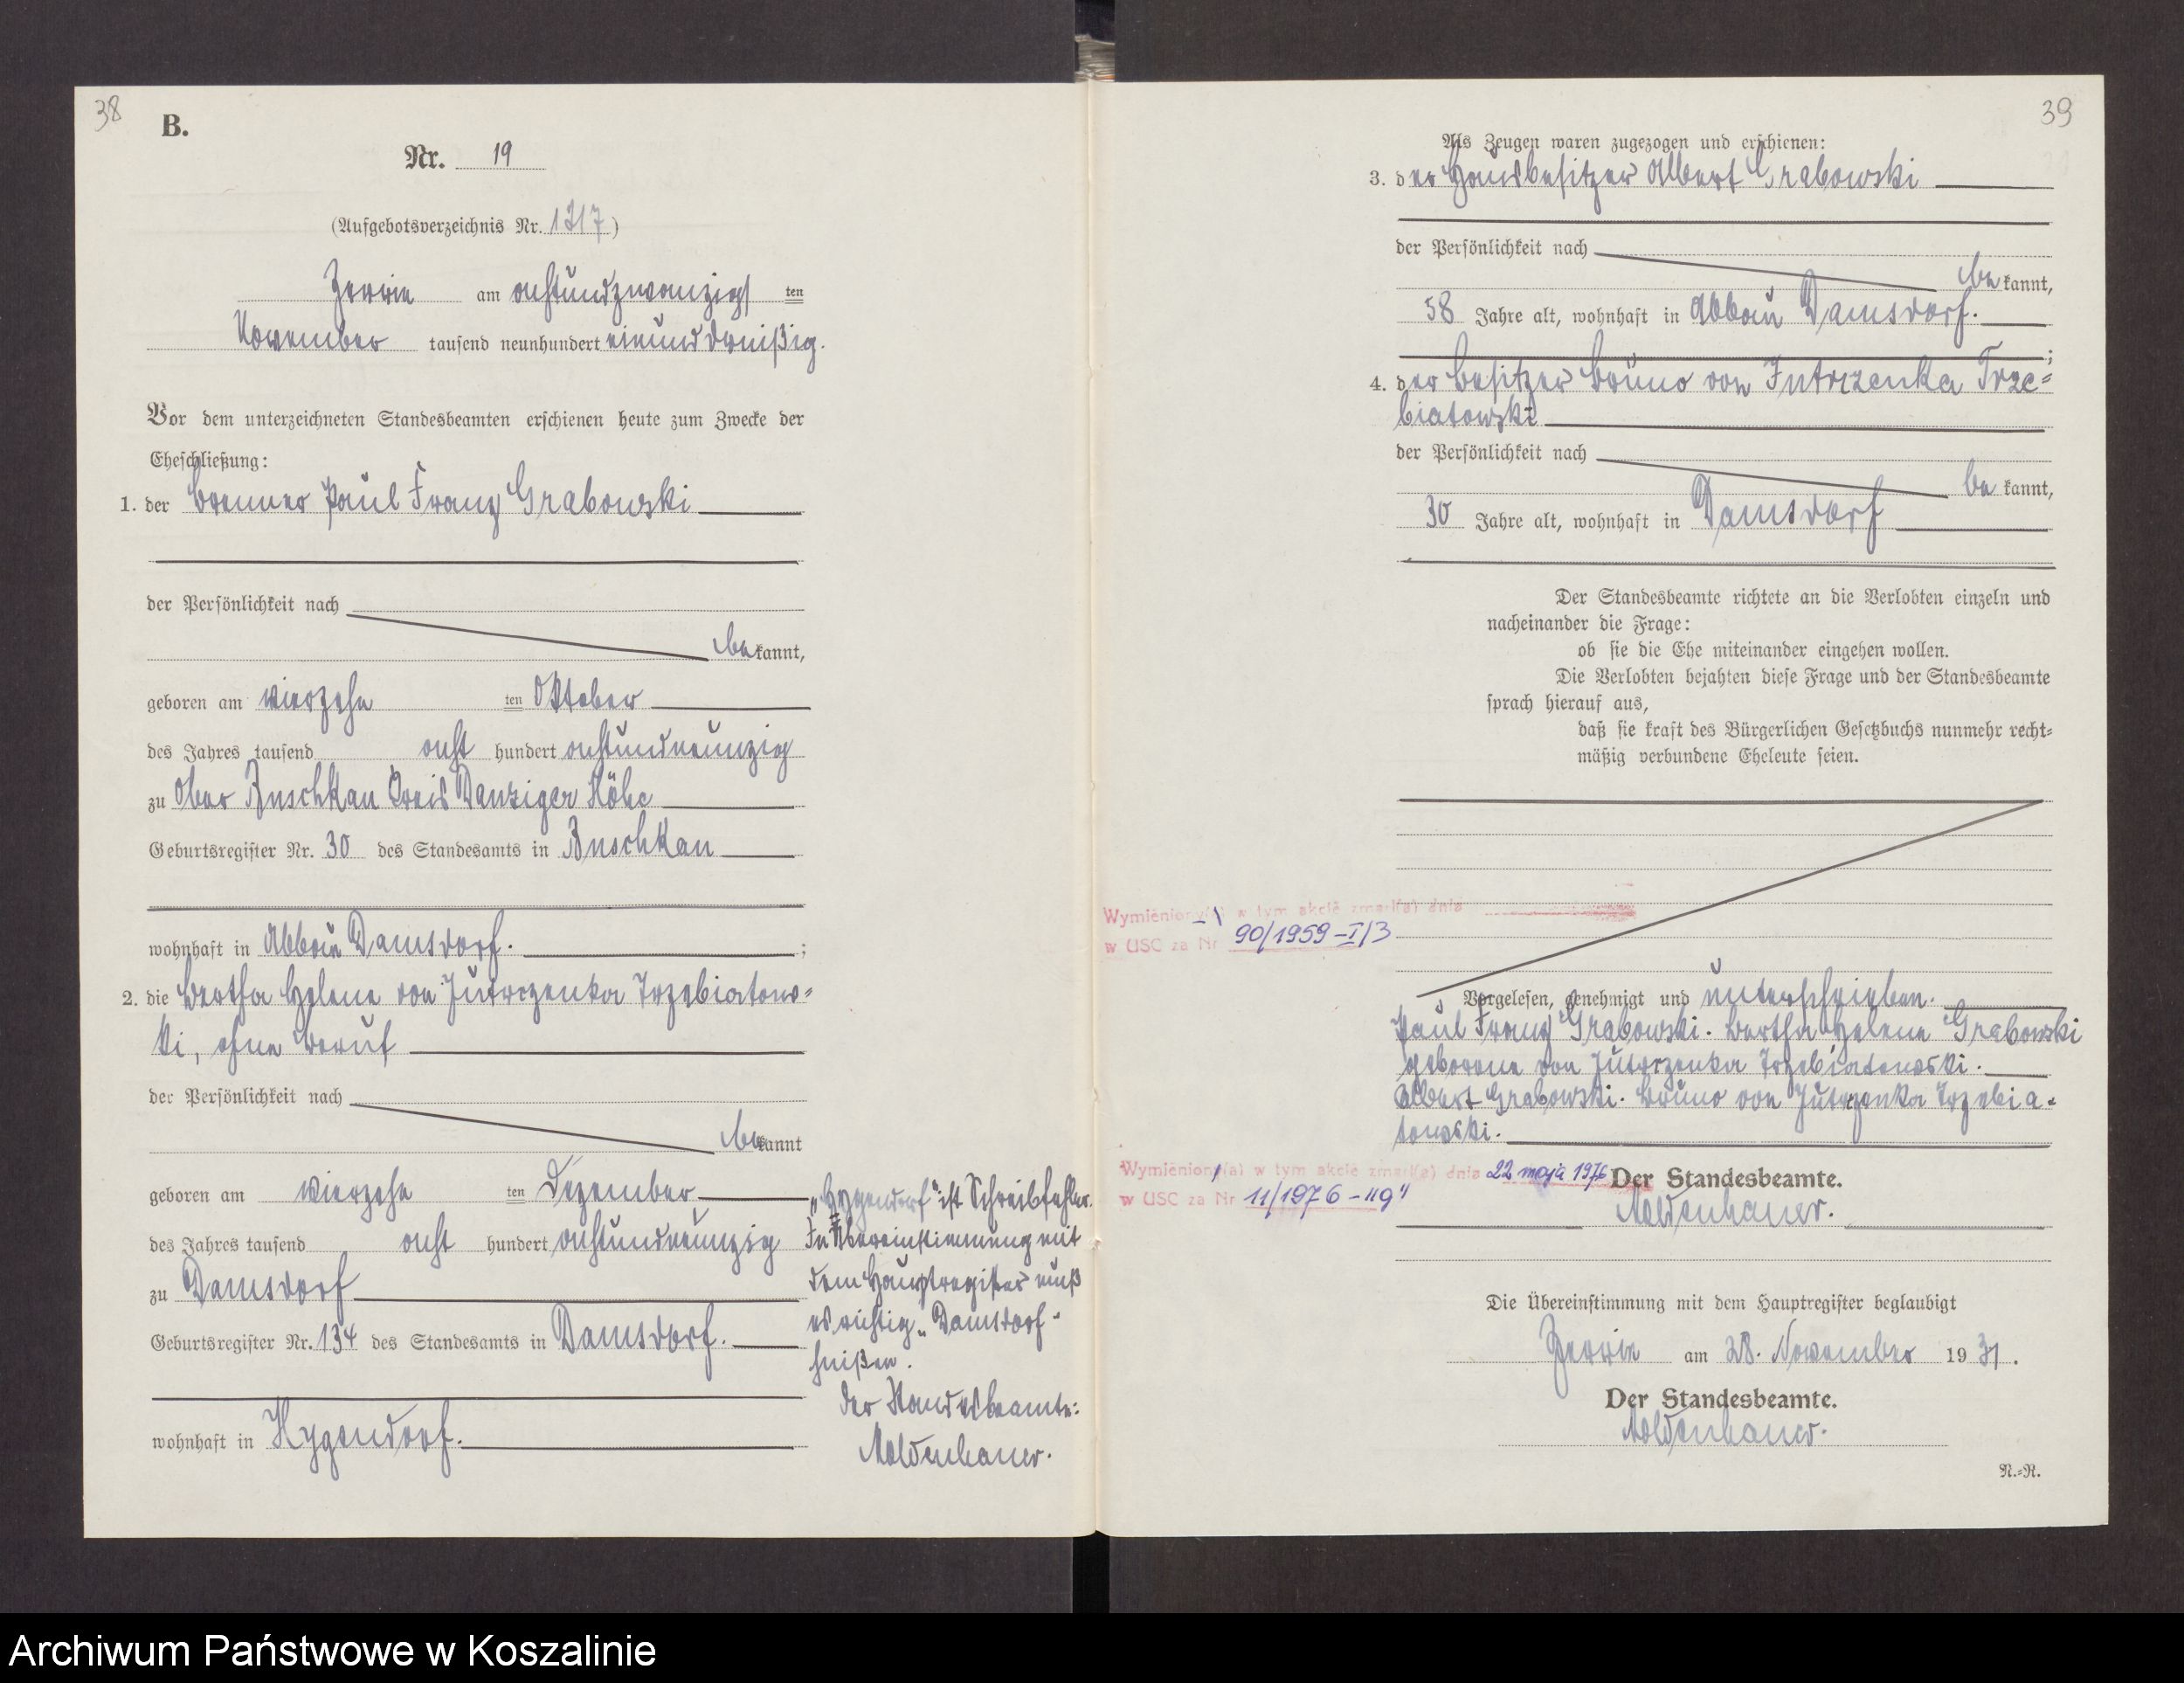 38
B.
Nr. 19
(Aufgebotsverzeichnis Nr. 1317)
Zerrin am achtundzwanzigsten
November tausend neunhundert einunddreißig.
Vor dem unterzeichneten Standesbeamten erschienen heute zum Zwecke der
Eheschließung:
1. der Brenner Paul Franz Grabowski
der Persönlichkeit nach
bekannt,
geboren am vierzehnten Oktober
des Jahres tausend acht hundert achtundneunzig
zu Ober Buschkau Kreis Danziger Höhe
Geburtsregister Nr. 30 des Standesamts in Buschkau
wohnhaft in Abbau Damsdorf. ;
2. die Bertha Helene von Jutrzenka Trzebiatows-
ki, ohne Beruf
der Persönlichkeit nach
bekannt
geboren am vierzehnten Dezember
des Jahres tausend acht hundert achtundneunzig
zu Damsdorf
Geburtsregister Nr. 134 des Standesamts in Damsdorf.
wohnhaft in Hygendorf.
„Hygendorf" ist Schreibfehler.
In Übereinstimmung mit
dem Hauptregister muß
es richtig „Damsdorf"
heißen.
Der Standesbeamte:
Moldenhauer.
39
Als Zeugen waren zugezogen und erschienen:
3. der Hausbesitzer Albert Grabowski
der Persönlichkeit nach
bekannt,
58 Jahre alt, wohnhaft in Abbau Damsdorf.
;
4. der Besitzer Bruno von Jutrzenka Trze-
biatowski
der Persönlichkeit nach
bekannt,
30 Jahre alt, wohnhaft in Damsdorf
Der Standesbeamte richtete an die Verlobten einzeln und
nacheinander die Frage:
ob sie die Ehe miteinander eingehen wollen.
Die Verlobten bejahten diese Frage und der Standesbeamte
sprach hierauf aus,
daß sie kraft des Bürgerlichen Gesetzbuchs nunmehr recht-
mäßig verbundene Eheleute seien.
Wymieniony(a) w tym akcie zmarł(a) dnia
w USC za Nr 90/1959-I/3
Vorgelesen, genehmigt und unterschrieben.
Paul Franz Grabowski. Bertha Helene Grabowski
geborene von Jutrzenka Trzebiatowski.
Albert Grabowski. Bruno von Jutrzenka Trzebia-
towski.
Wymieniony(a) w tym akcie zmarł(a) dnia 22 maja 1976
w USC za Nr 11/1976-"g"
Der Standesbeamte.
Moldenhauer.
Die Übereinstimmung mit dem Hauptregister beglaubigt
Zerrin am 28. November 1931.
Der Standesbeamte.
Moldenhauer.
N.-R.
Archiwum Państwowe w Koszalinie